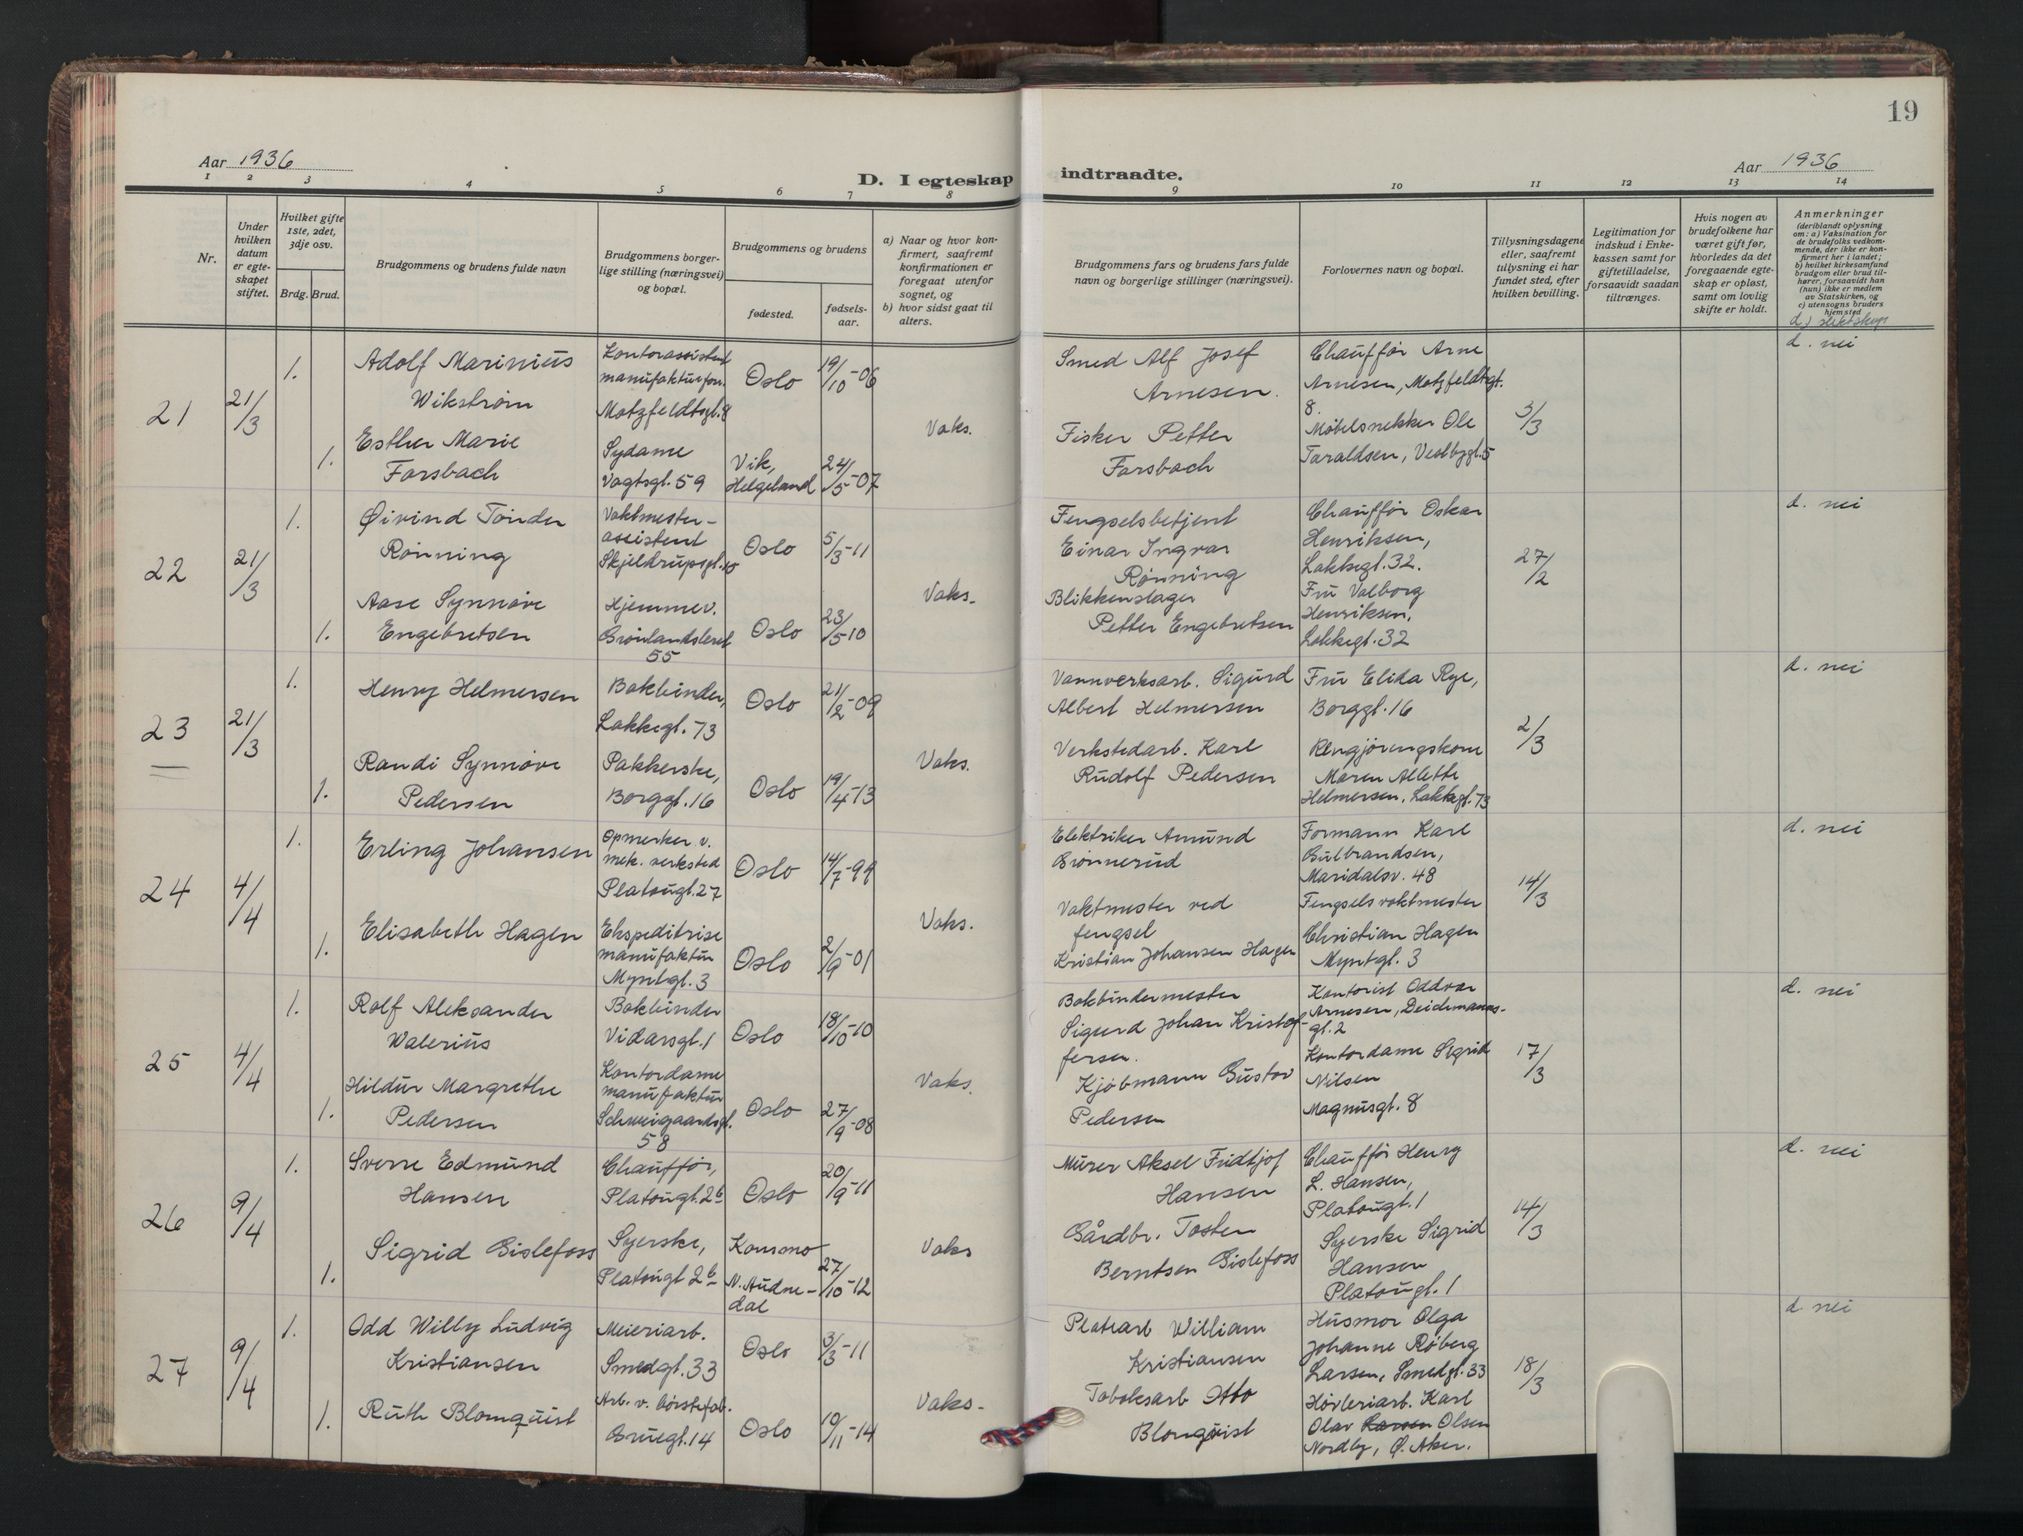 19
Aar 1936
D. I egteskap indtraadte.
Aar 1936
1 2 3 4 5 6 7 8 9 10 11 12 13 14
Nr.
Under hvilken datum er egteskapet stiftet.
Hvilket gifte 1ste, 2det, 3dje osv.
Brdg. Brud.
Brudgommens og brudens fulde navn
Brudgommens borgerlige stilling (næringsvei) og bopæl.
Brudgommens og brudens
fødested. fødselsaar.
a) Naar og hvor konfirmert, saafremt konfirmationen er foregaat utenfor sognet, og
b) hvor sidst gaat til alters.
Brudgommens fars og brudens fars fulde navn og borgerlige stillinger (næringsvei).
Forlovernes navn og bopæl.
Tillysningsdagene eller, saafremt tillysning ei har fundet sted, efter hvilken bevilling.
Legitimation for indskud i Enkekassen samt for giftetilladelse, forsaavidt saadan tiltrænges.
Hvis nogen av brudefolkene har været gift før, hvorledes da det foregaaende egteskap er opløst, samt om lovlig skifte er holdt.
Anmerkninger (deriblandt oplysning om: a) Vaksination for de brudefolks vedkommende, der ikke er konfirmert her i landet; b) hvilket kirkesamfund brudgom eller brud tilhører, forsaavidt han (hun) ikke er medlem av Statskirken, og c) utensogns bruders hjemsted
d) slektskap
21
21/3
1.
Adolf Marinius
Wikstrøm
Kontorassistent
manufakturforr.
Motzfeldtsgt. 8
Oslo
19/10-06
Vaks.
Smed Alf Josef
Arnesen.
Chauffør Arne
Arnesen, Motzfeldtsgt.
8.
3/3
d. nei
1.
Esther Marie
Forsbach
Sydame
Vogtsgt. 59
Vik,
Helgeland
24/5-07
Fisker Petter
Forsbach
Møbelsnekker Ole
Taraldsen, Vestbygt. 5
22
21/3
1.
Øivind Tønder
Rønning
Vaktmester-
assistent
Skjeldrupsgt. 15
Oslo
5/3-11
Vaks.
Fengselsbetjent
Einar Ingvar
Rønning
Chauffør Oskar
Henriksen,
Lakkegt. 32.
27/2
d. nei
1.
Aase Synnøve
Engebretsen
Hjemmev.
Grønlandsleret
55
Oslo
23/5-10
Blikkenslager
Petter Engebretsen
Fru Valborg
Henriksen,
Lakkegt. 32
23
21/3
1.
Henry Helmersen
Bokbinder,
Lakkegt. 73
Oslo
21/2-09
Vaks.
Vannverksarb. Sigurd
Albert Helmersen
Fru Elida Rye,
Borggt. 16
2/3
d. nei
1.
Randi Synnøve
Pedersen
Pakkerske,
Borggt. 16
Oslo
19/4-13
Verkstedarb. Karl
Rudolf Pedersen
Rengjøringskone
Maren Alette
Helmersen, Lakkegt. 73
24
4/4
1.
Erling Johansen
Opmerker v.
mek. verksted
Platougt. 27
Oslo
14/7-99
Vaks.
Elektriker Amund
Brønnerud
Formann Karl
Gulbrandsen,
Maridalsv. 48
14/3
d. nei
1.
Elisabeth Hagen
Ekspeditrise
manufaktur
Myntgt. 3
Oslo
2/9-01
Vaktmester ved
fengsel
Kristian Johansen Hagen
Fengselsvaktmester
Christian Hagen
Myntgt. 3
25
4/4
1.
Rolf Aleksander
Walerius
Bokbinder
Vidarsgt. 1
Oslo
18/10-10
Vaks.
Bokbindermester
Sigurd Johan Kristof-
fersen.
Kontorist Oddvar
Arnesen, Deichmanns-
gt. 2
17/3
d. nei
1.
Hildur Margrethe
Pedersen
Kontordame
manufaktur
Schweigaardsgt.
58
Oslo
27/9-08
Kjøbmann Gustav
Pedersen
Kontordame Sigrid
Nilsen
Magnusgt. 8
26
9/4
1.
Sverre Edmund
Hansen
Chauffør,
Platougt. 2b
Oslo
20/9-11
Vaks
Murer Aksel Fridtjof
Hansen
Chauffør Henry
L. Hansen,
Platougt. 1
14/3
d. nei
1.
Sigrid Gislefoss
Syerske,
Platougt 2b
Konsmo
N. Audne-
dal
27/10-12
Gårdbr. Tosten
Berntsen Gislefoss
Syerske Sigrid
Hansen
Platougt. 1
27
9/4
1.
Odd Willy Ludvig
Kristiansen
Meieriarb.
Smedgt. 33
Oslo
3/3-11
Vaks.
Platearb William
Kristiansen
Husmor Olga
Johanne Røberg
Larsen, Smedgt. 33
18/3
d nei
1.
Ruth Blomquist
Arb. v. børstefab.
Bruegt. 14
Oslo
10/11-14
Tobaksarb Otto
Blomquist
Høvleriarb. Karl
Olav Larsen Olsen
Nordby, Ø. Aker.